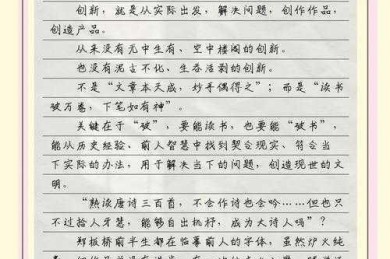 创新，就是从实际出发，解决问题，创作作品，
创造产品。
从来没有无中生有、空中楼阁的创新。
也没有泥古不化、生吞活剥的创新。
不是“文章本天成，妙手偶得之”；而是“读书
破万卷，下笔如有神”。
关键在于“破”，要能读书，也要能“破书”，
能从历史经验、前人智慧中找到契合现实、符合当
下实际的办法，用于解决当下的问题，创造现世的文
明。
“熟读唐诗三百首，不会作诗也会吟……但也只
不过拾人牙慧，能够自出机杼，成为大诗人吗”？
郑板桥前半生都在临摹前人的字体，虽然炉火纯